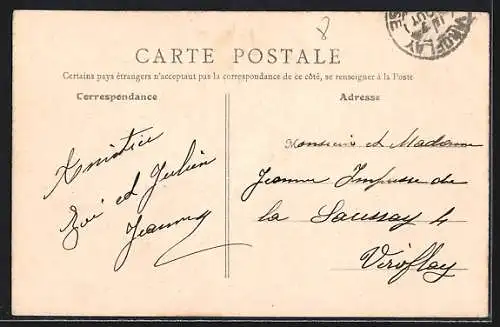 8
VIROFLAY
OISE
CARTE POSTALE
Certains pays étrangers n'acceptant pas la correspondance de ce côté, se renseigner à la Poste
Correspondance
Adresse
Amitiés
Zoé et Julien
Jeanney
Monsieur et Madame
Jeanne Impasse de
la Saussay 4
Viroflay